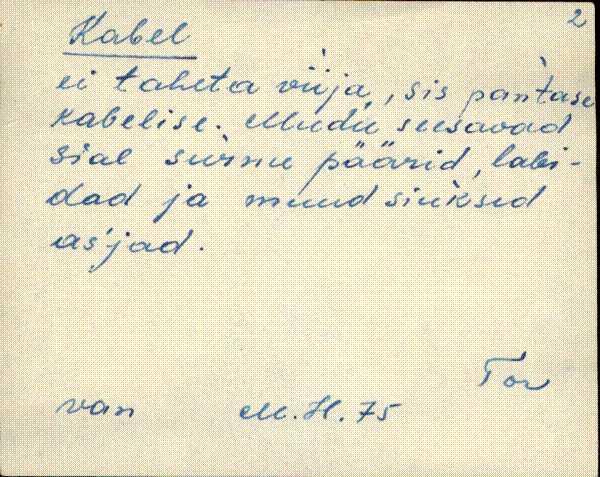 2
Kabel
ei taheta viija, sis pantase
kabelise. Mudu seesavad
sial surnu päärid, labi-
dad ja muud siuksed
as'jad.
Tor
van M.H. 75